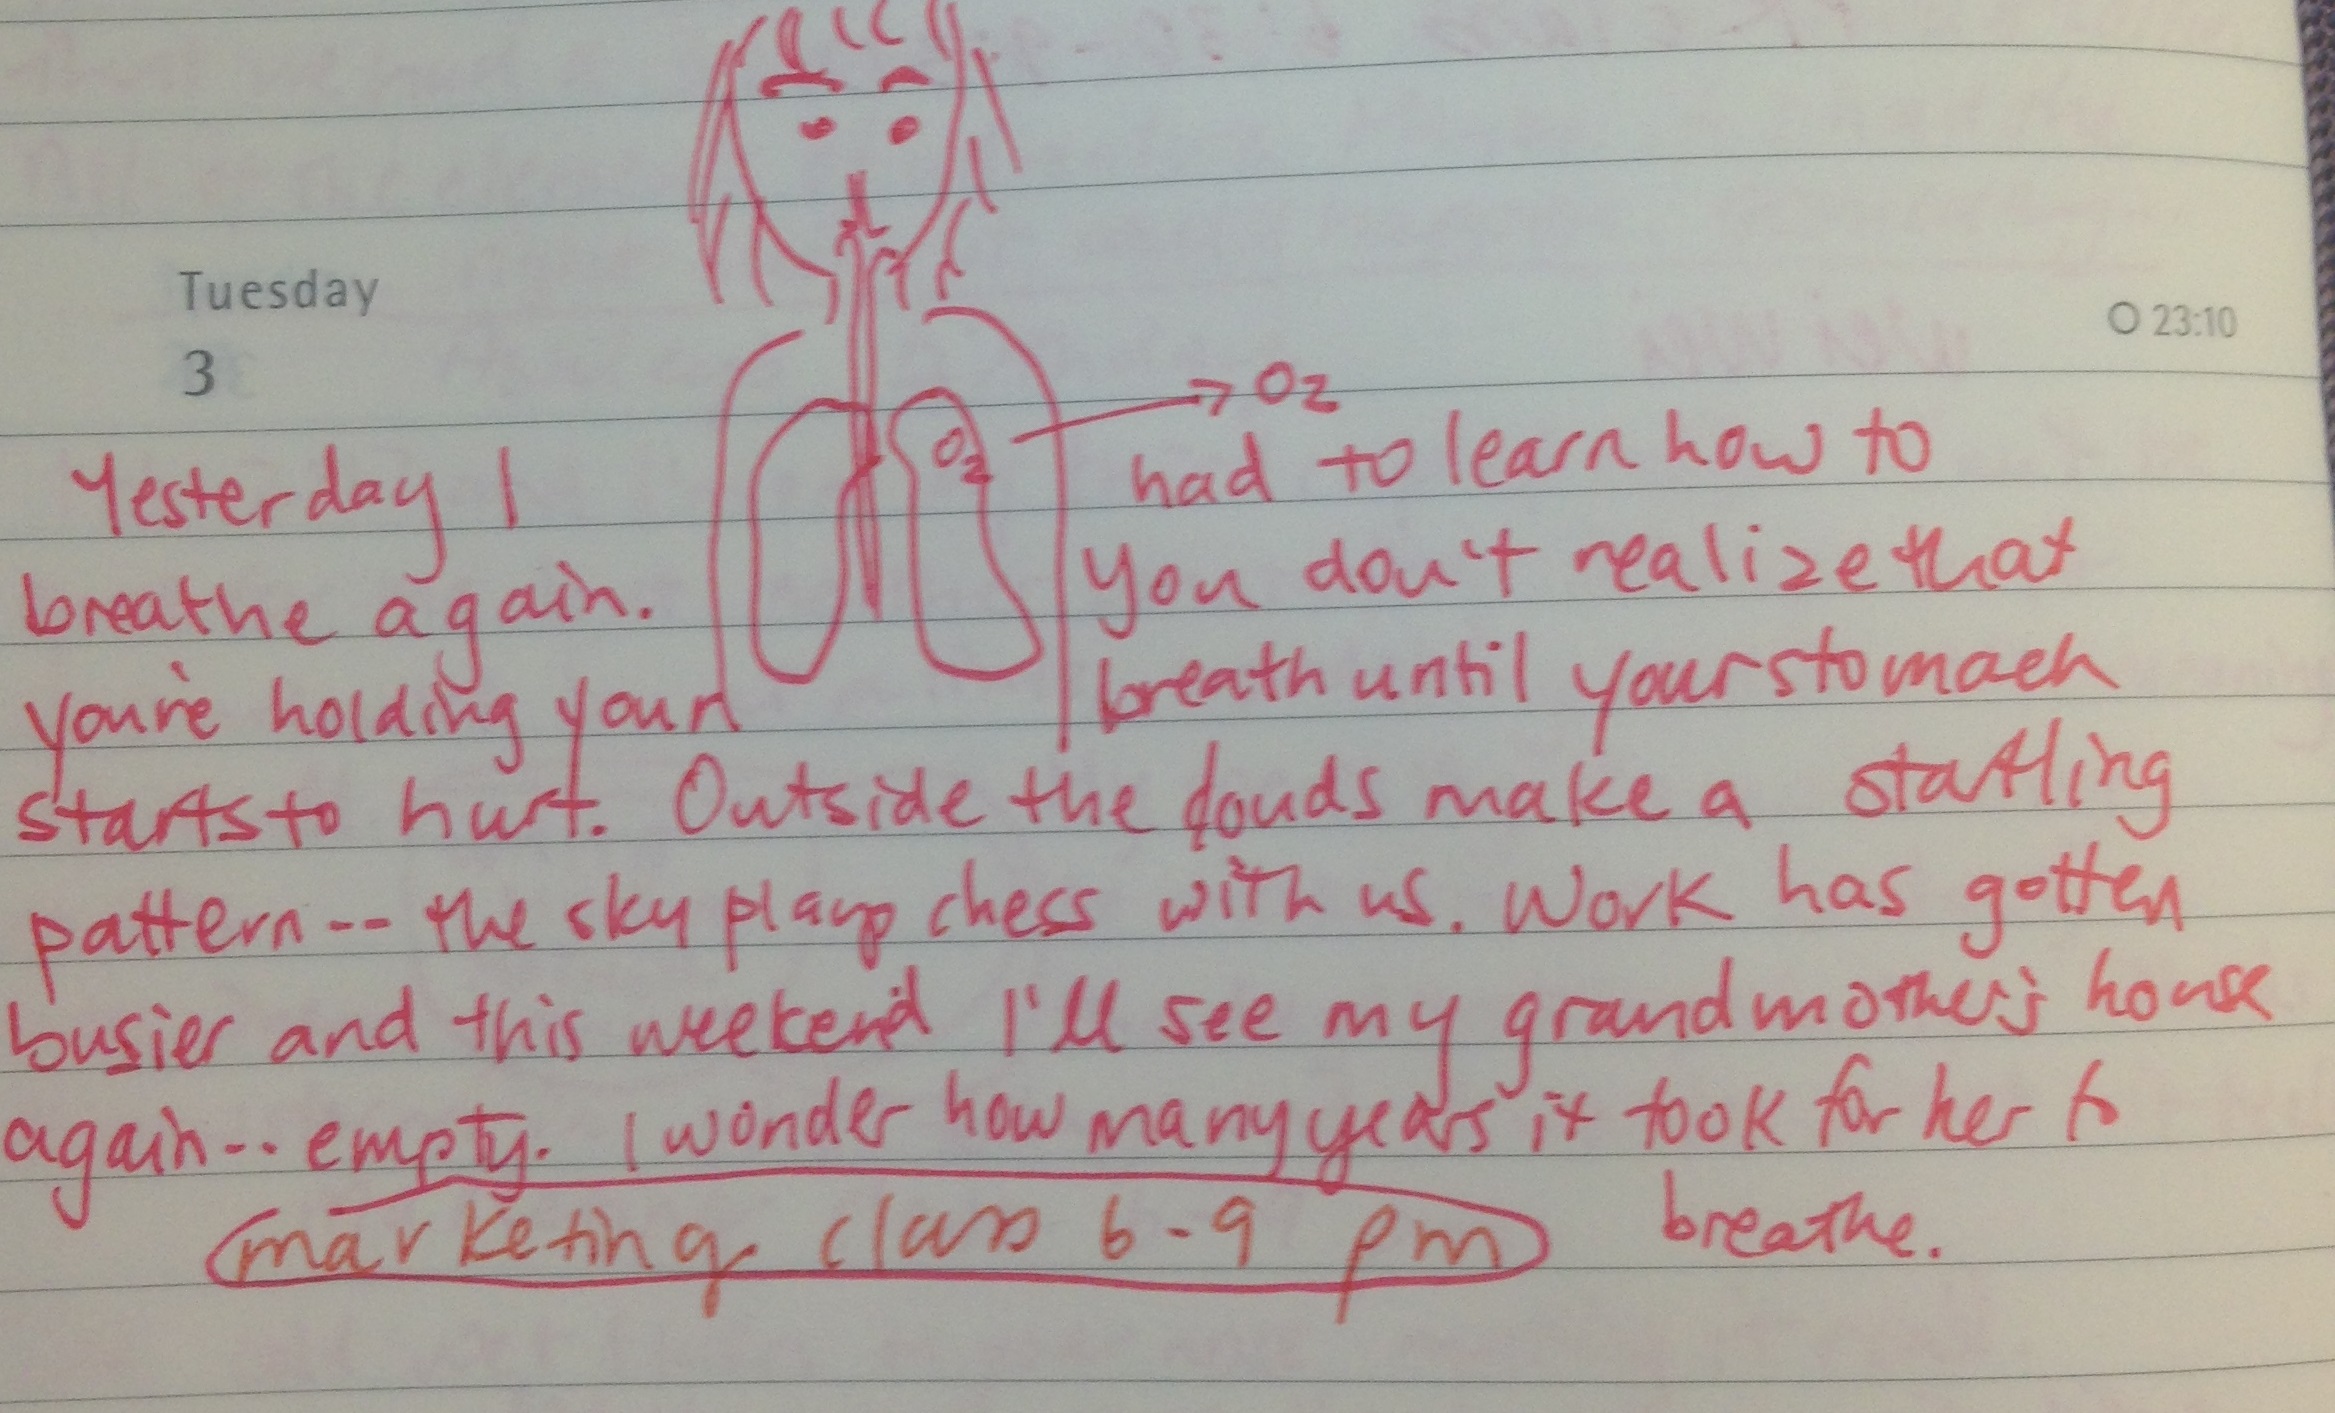 Tuesday
3
O 23:10
O2
O2
Yesterday I had to learn how to
breathe again. You don't realize that
you're holding your breath until your stomach
starts to hurt. Outside the clouds make a startling
pattern -- the sky plays chess with us. Work has gotten
busier and this weekend I'll see my grandmother's house
again -- empty. I wonder how many years it took for her to
breathe.
marketing class 6-9 pm